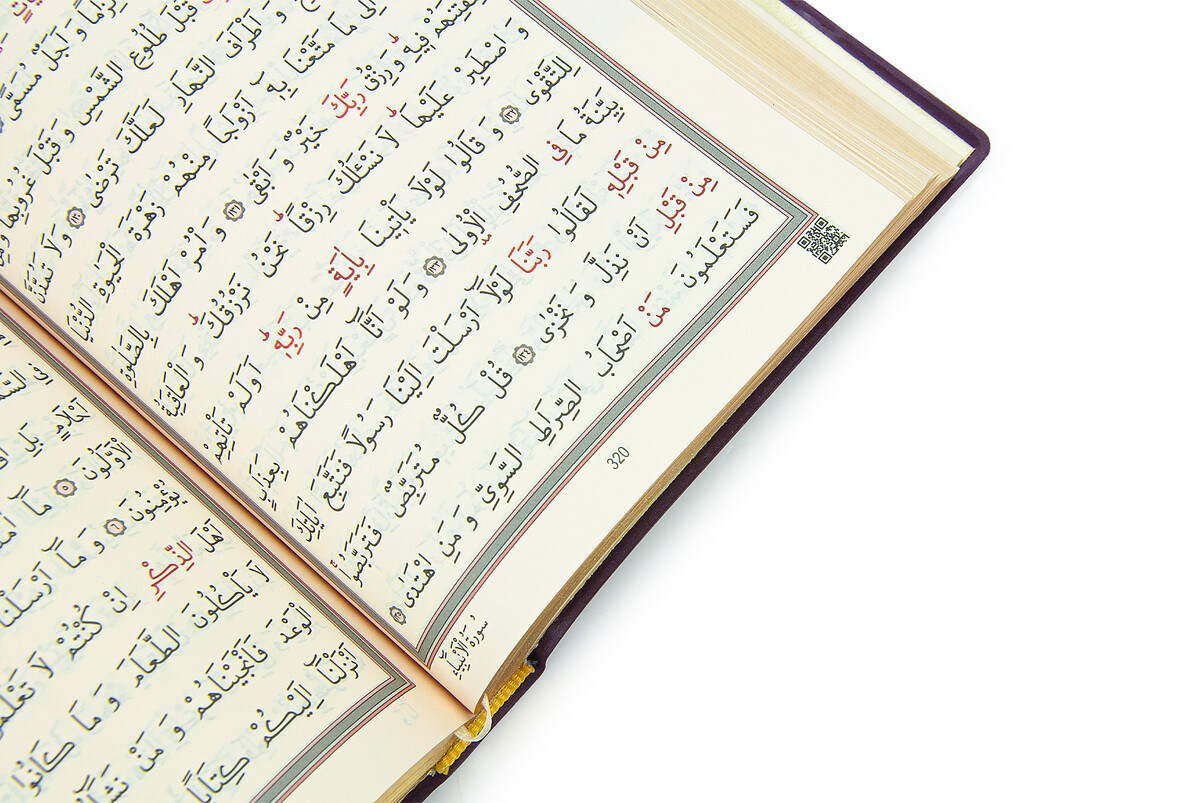 وَ اَجَلٌ مُسَمًّى
قَبْلَ طُلُوعِ الشَّمْسِ وَ قَبْلَ غُرُوبِهَا
وَ اَطْرَافَ النَّهَارِ لَعَلَّكَ تَرْضٰى ﴿١٣٠﴾ وَ لَا تَمُدَّنَّ
اِلٰى مَا مَتَّعْنَا بِهٖٓ اَزْوَاجًا مِنْهُمْ زَهْرَةَ الْحَيٰوةِ الدُّنْيَا
لِنَفْتِنَهُمْ فٖيهِ وَ رِزْقُ رَبِّكَ خَيْرٌ وَ اَبْقٰى ﴿١٣١﴾ وَ أْمُرْ اَهْلَكَ بِالصَّلٰوةِ
وَ اصْطَبِرْ عَلَيْهَا لَا نَسْـَٔلُكَ رِزْقًا نَحْنُ نَرْزُقُكَ وَ الْعَاقِبَةُ
لِلتَّقْوٰى ﴿١٣٢﴾ وَ قَالُوا لَوْلَا يَأْتٖينَا بِاٰيَةٍ مِنْ رَبِّهٖ اَوَلَمْ تَأْتِهِمْ
بَيِّنَةُ مَا فِي الصُّحُفِ الْاُولٰى ﴿١٣٣﴾ وَ لَوْ اَنَّٓا اَهْلَكْنَاهُمْ بِعَذَابٍ
مِنْ قَبْلِهٖ لَقَالُوا رَبَّنَا لَوْلَٓا اَرْسَلْتَ اِلَيْنَا رَسُولًا فَنَتَّبِعَ اٰيَاتِكَ
مِنْ قَبْلِ اَنْ نَذِلَّ وَ نَخْزٰى ﴿١٣٤﴾ قُلْ كُلٌّ مُتَرَبِّصٌ فَتَرَبَّصُوا
فَسَتَعْلَمُونَ مَنْ اَصْحَابُ الصِّرَاطِ السَّوِيِّ وَ مَنِ اهْتَدٰى ﴿١٣٥﴾
320
سُورَةُ الْاَنْبِيَٓاءِ
فِي
اَحْلَامٍ بَلِ
الْاَوَّلُونَ ﴿٥﴾ مَٓا
يُؤْمِنُونَ ﴿٦﴾ وَ مَٓا اَرْسَلْنَا
اَهْلَ الذِّكْرِ اِنْ كُنْتُمْ لَا
لَا يَأْكُلُونَ الطَّعَامَ وَ مَا كَانُوا
الْوَعْدَ فَاَنْجَيْنَاهُمْ وَ مَنْ
اَنْزَلْنَٓا اِلَيْكُمْ كِتَابًا